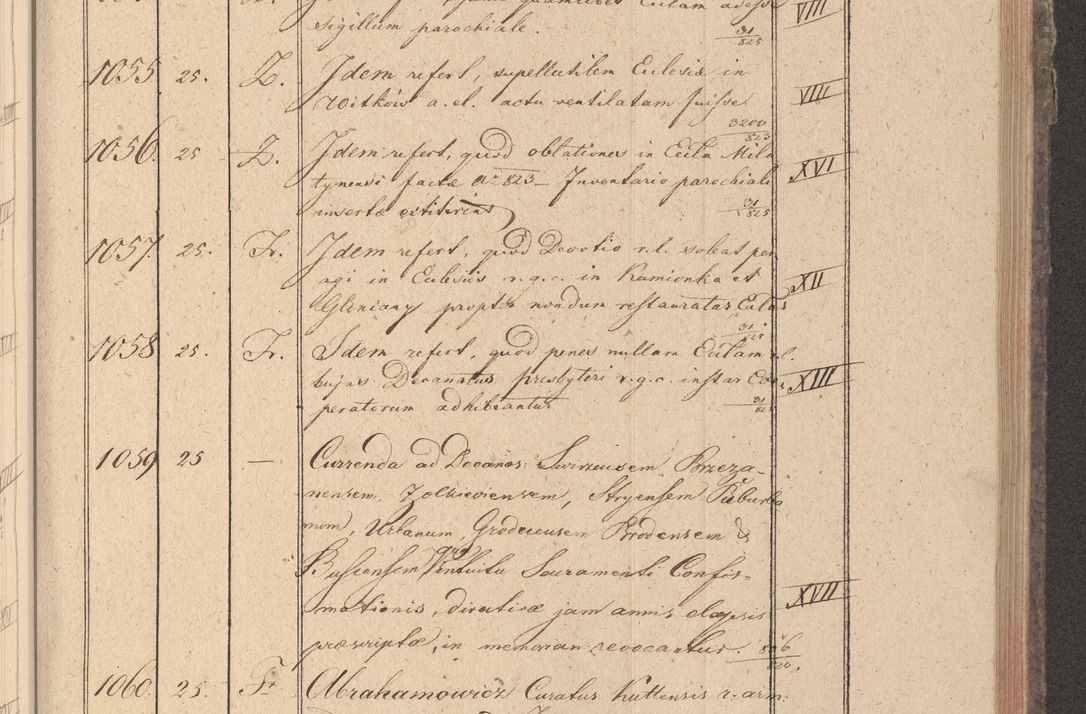 sigillum parochiale. 31/825 VIII
1055 25. Z. Idem refert, supellectilem Ecclesiæ in
Witków a. el. actu ventilatam fuisse VIII
3200/823
1056. 25 Z. Idem refert, quod oblationes in Eccla Mila
tynensi factæ Aº 823 – Inventario parochiali XVI
insertæ extiterint 31/825
1057. 25. Fr. Idem refert, quod Devotio r. l. soleat per
agi in Ecclesiis r. g. c. in Kamionka et XII
Gliniany propter nondum restauratas Eclas
31/825
1058 25. Fr. Idem refert, quod penes nullam Ecclam r. l.
hujus Decanatus presbyteri r. g. c. instar Coo- XIII
peratorum adhibeantur 31/825
1059 25 — Currenda ad Decanos: Swirzensem Brzeza-
nensem, Zolkieviensem, Stryensem Suburba
num, Urbanum, Grodecensem Brodensem &
Buscensem intuitu Sacramenti Confir-
mationis, directivæ jam annis elapsis XVII
præscriptæ, in memoriam revocantur. 806/820.
1060. 25. Fr Abrahamowicz Curatus Kuttensis r. arm.